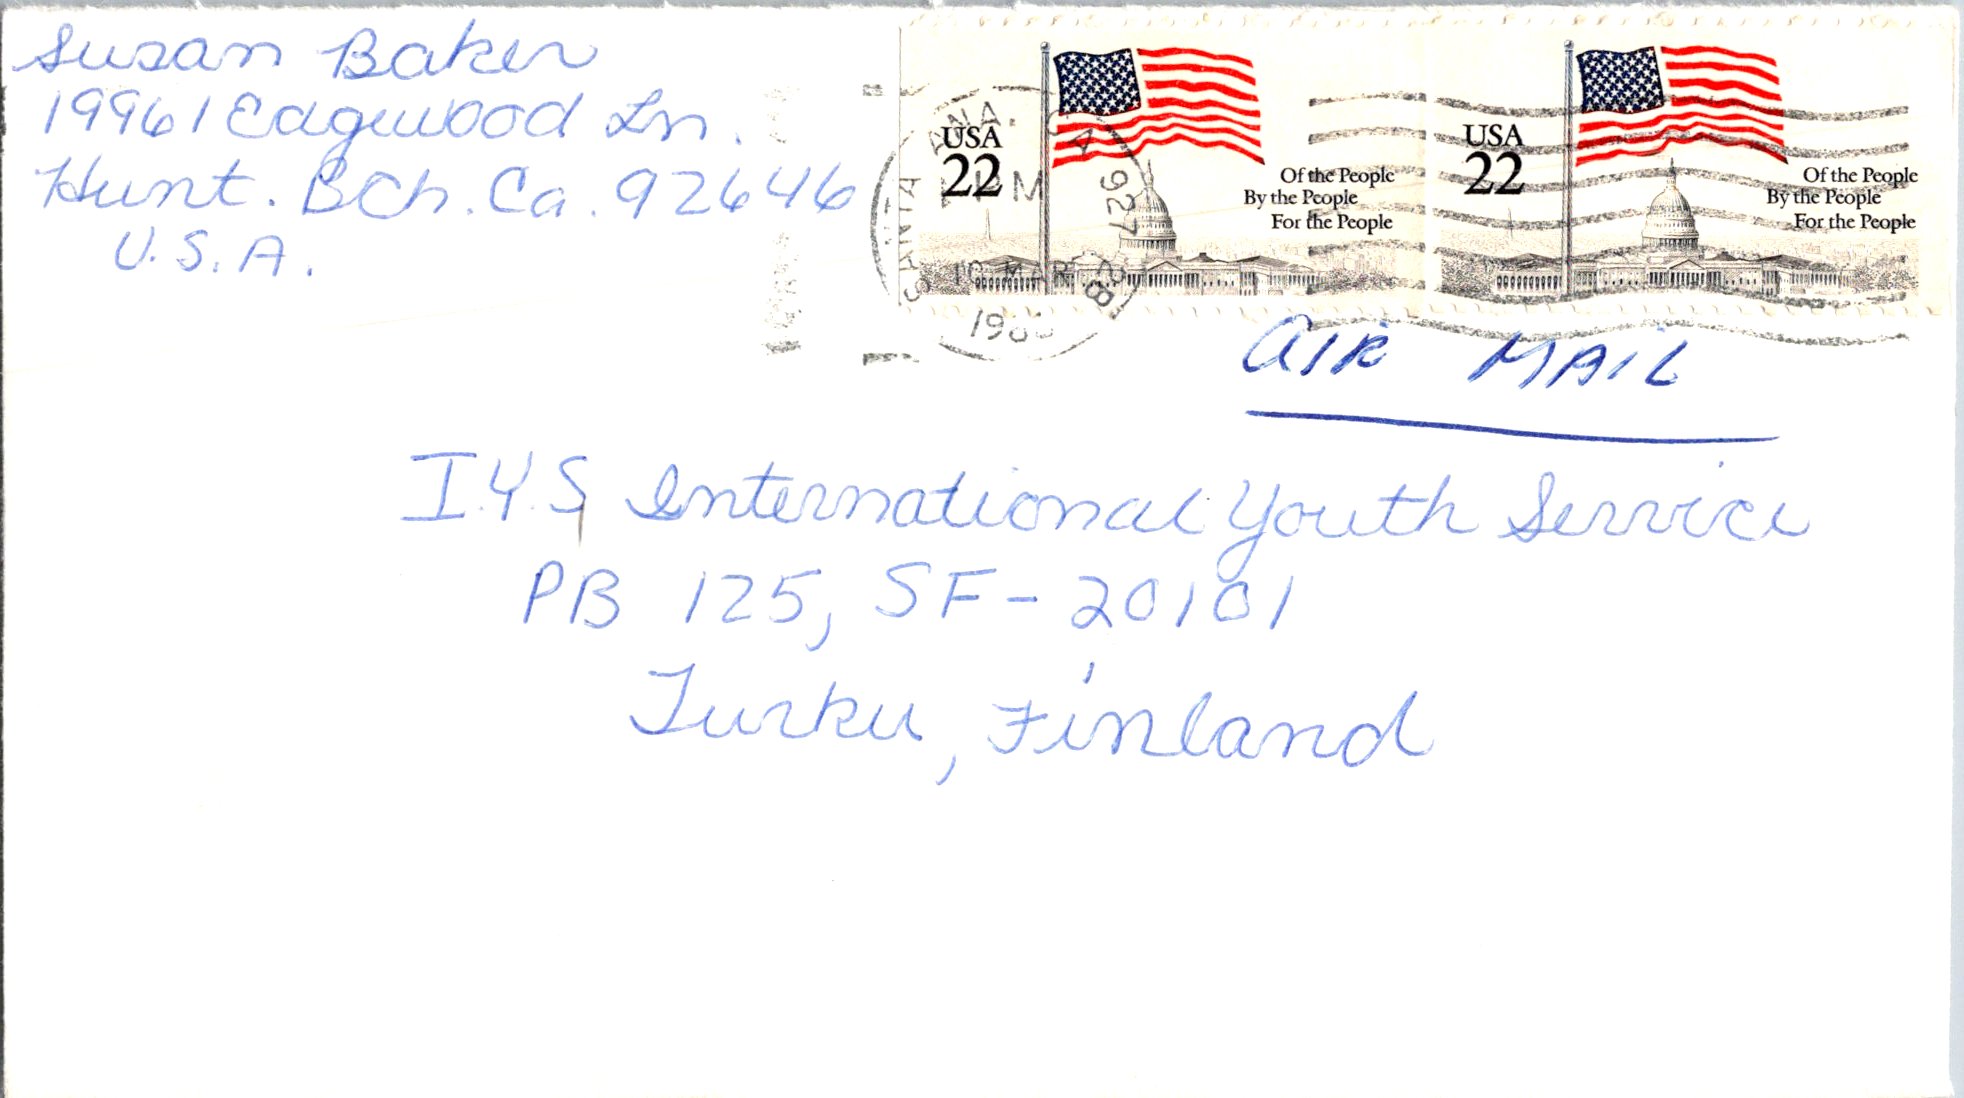 Susan Baker
19961 Edgewood Ln.
Hunt. Bch. Ca. 92646
U.S.A.
SANTA ANA. CA 927
PM
MAR
USA
22
Of the People
By the People
For the People
USA
22
Of the People
By the People
For the People
AIR MAIL
I.Y.S International Youth Service
PB 125, SF-20101
Turku, Finland